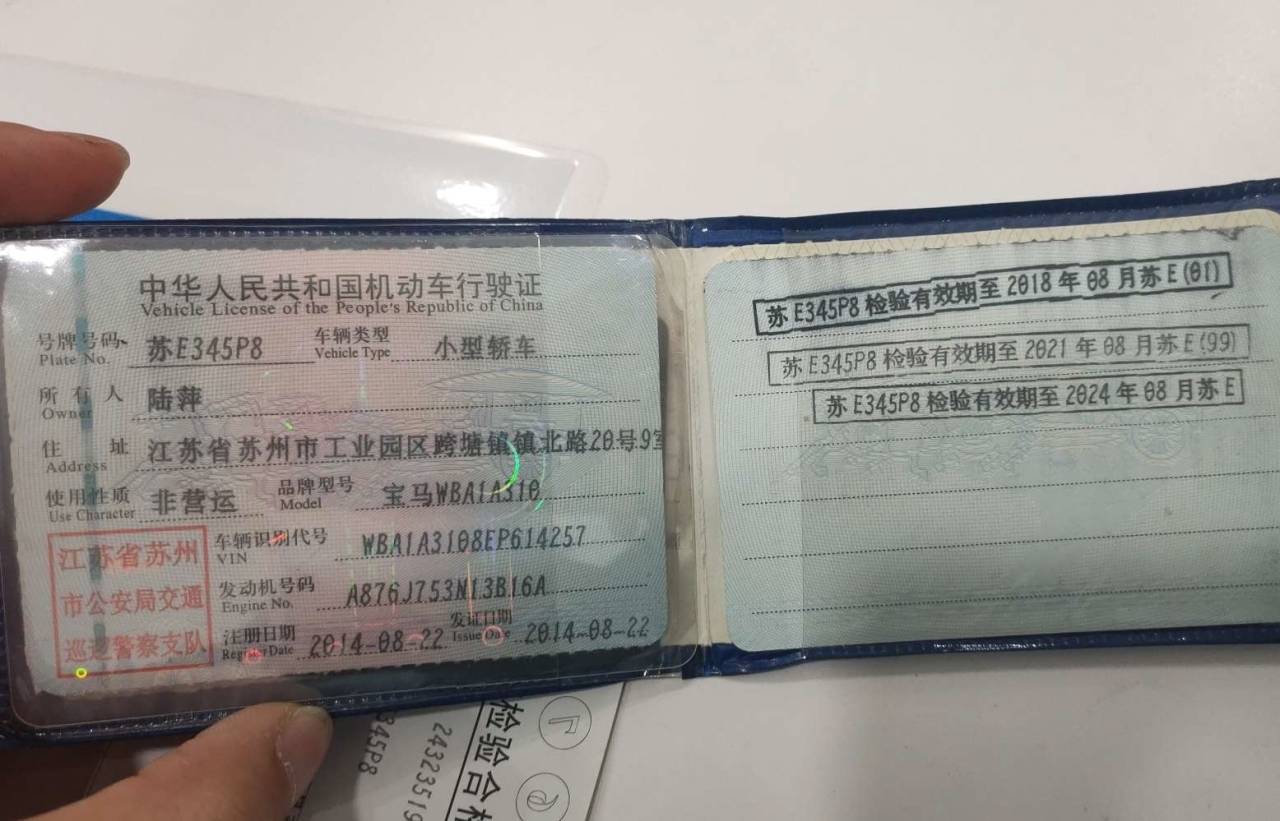 中华人民共和国机动车行驶证
Vehicle License of the People's Republic of China
号牌号码 Plate No. 苏E345P8 车辆类型 Vehicle Type 小型轿车
所有人 Owner 陆萍
住址 Address 江苏省苏州市工业园区跨塘镇镇北路20号9室
使用性质 Use Character 非营运 品牌型号 Model 宝马WBA1A310
车辆识别代号 VIN WBA1A3108EP614257
发动机号码 Engine No. A876J753N13B16A
注册日期 Register Date 2014-08-22 发证日期 Issue Date 2014-08-22
江苏省苏州
市公安局交通
巡逻警察支队
苏E345P8检验有效期至2018年08月苏E(01)
苏E345P8检验有效期至2021年08月苏E(99)
苏E345P8检验有效期至2024年08月苏E
345P8
24323519
检验合格